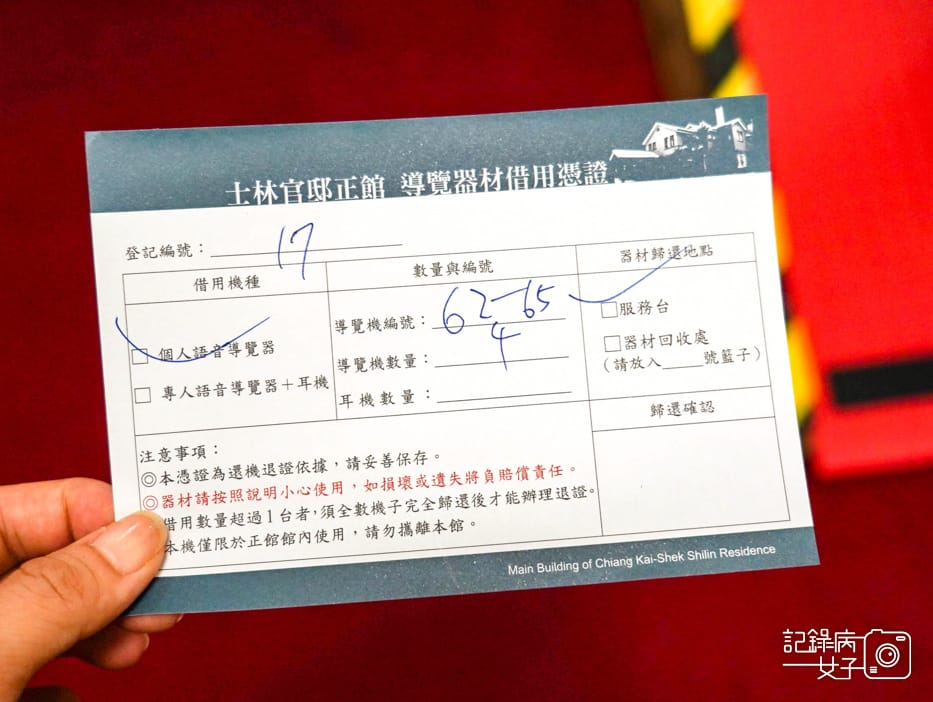 士林官邸正館 導覽器材借用憑證
登記編號：17
借用機種 數量與編號 器材歸還地點
個人語音導覽器
專人語音導覽器＋耳機
導覽機編號：62-65
導覽機數量：4
耳機數量：
□服務台
□器材回收處
（請放入____號籃子）
歸還確認
注意事項：
◎本憑證為還機退證依據，請妥善保存。
◎器材請按照說明小心使用，如損壞或遺失將負賠償責任。
借用數量超過1台者，須全數機子完全歸還後才能辦理退證。
本機僅限於正館館內使用，請勿攜離本館。
Main Building of Chiang Kai-Shek Shilin Residence
記錄病
女子